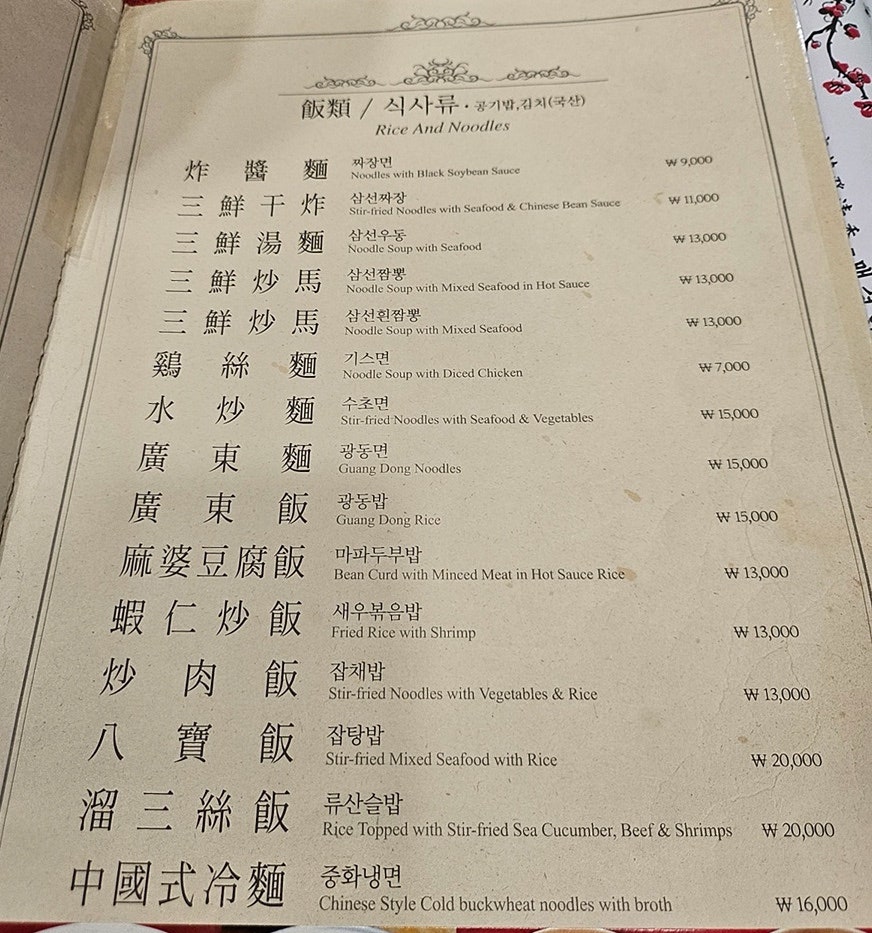 飯類 / 식사류 · 공기밥,김치(국산)
Rice And Noodles
炸醬麵 짜장면 ₩ 9,000
Noodles with Black Soybean Sauce
三鮮干炸 삼선짜장 ₩ 11,000
Stir-fried Noodles with Seafood & Chinese Bean Sauce
三鮮湯麵 삼선우동 ₩ 13,000
Noodle Soup with Seafood
三鮮炒馬 삼선짬뽕 ₩ 13,000
Noodle Soup with Mixed Seafood in Hot Sauce
三鮮炒馬 삼선흰짬뽕 ₩ 13,000
Noodle Soup with Mixed Seafood
鷄絲麵 기스면 ₩ 7,000
Noodle Soup with Diced Chicken
水炒麵 수초면 ₩ 15,000
Stir-fried Noodles with Seafood & Vegetables
廣東麵 광동면 ₩ 15,000
Guang Dong Noodles
廣東飯 광동밥 ₩ 15,000
Guang Dong Rice
麻婆豆腐飯 마파두부밥 ₩ 13,000
Bean Curd with Minced Meat in Hot Sauce Rice
蝦仁炒飯 새우볶음밥 ₩ 13,000
Fried Rice with Shrimp
炒肉飯 잡채밥 ₩ 13,000
Stir-fried Noodles with Vegetables & Rice
八寶飯 잡탕밥 ₩ 20,000
Stir-fried Mixed Seafood with Rice
溜三絲飯 류산슬밥 ₩ 20,000
Rice Topped with Stir-fried Sea Cucumber, Beef & Shrimps
中國式冷麵 중화냉면 ₩ 16,000
Chinese Style Cold buckwheat noodles with broth